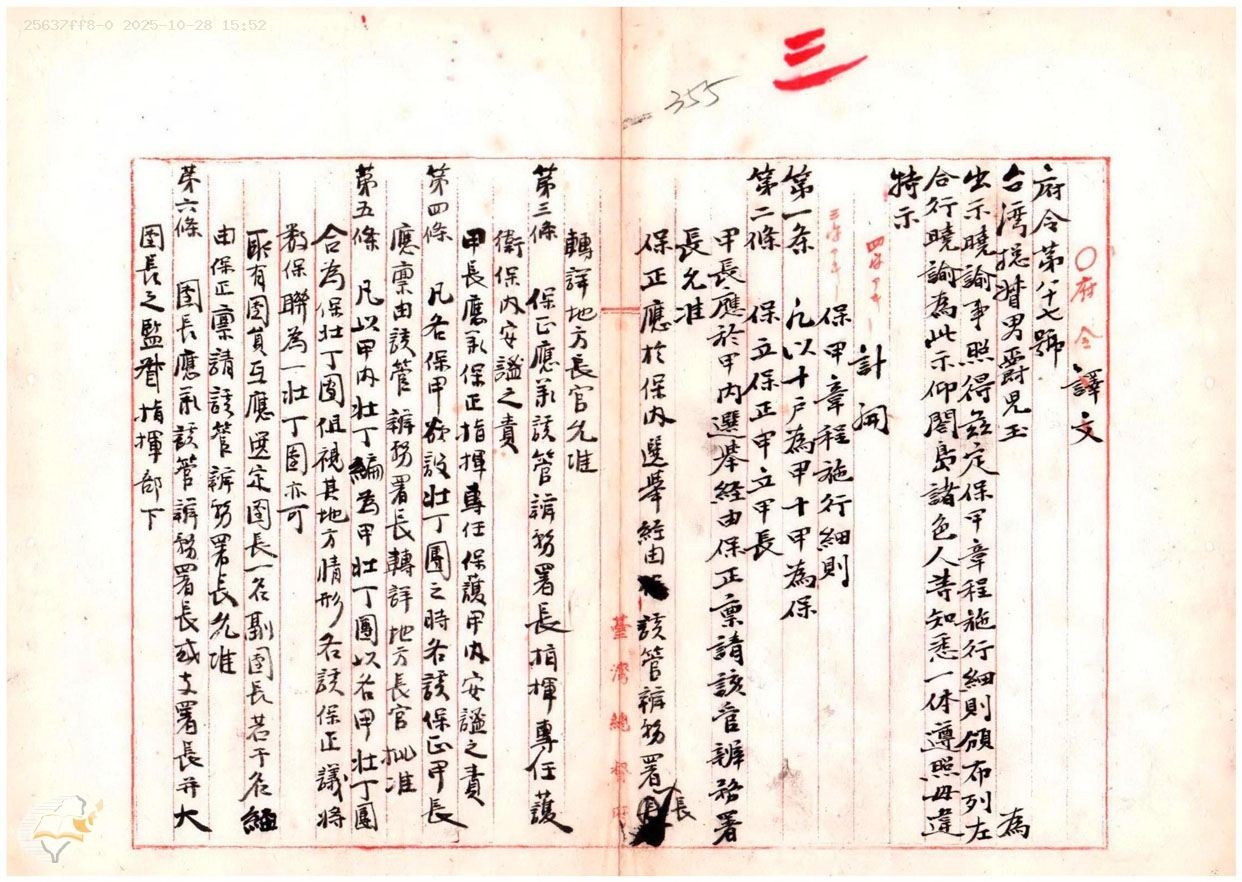 25637ff8-0 2025-10-28 15:52
三
355
○府令
譯文
府令第八十七號
台湾揔督男爵児玉　為
出示曉諭事照得玆定保甲章程施行細則頒布列左
合行曉諭為此示仰闔島諸色人等知悉一体遵照毋違
特示
計開
保甲章程施行細則
第一条　凢以十戸為甲十甲為保
第二條　保立保正甲立甲長
甲長應於甲内選举経由保正禀請該管辨務署
長允准
保正應於保内選举経由該管辨務署長
轉詳地方長官允准
第三條　保正應承該管辨務署長指揮專任護
衛保内安謐之責
甲長應承保正指揮專任保護甲内安謐之責
第四條　凡各保甲欲設壮丁團之時各該保正甲長
應禀由該管辨務署長轉詳地方長官批准
第五條　凡以甲内壮丁編為甲壮丁團以各甲壮丁團
合為保壮丁團但視其地方情形各該保正議将
数保聯為一壮丁團亦可
所有團員互應選定團長一名副團長若干名経
由保正禀請該管辨務署長允准
第六條　團長應承該管辨務署長或支署長并大
團長之監督指揮部下
臺灣總督府